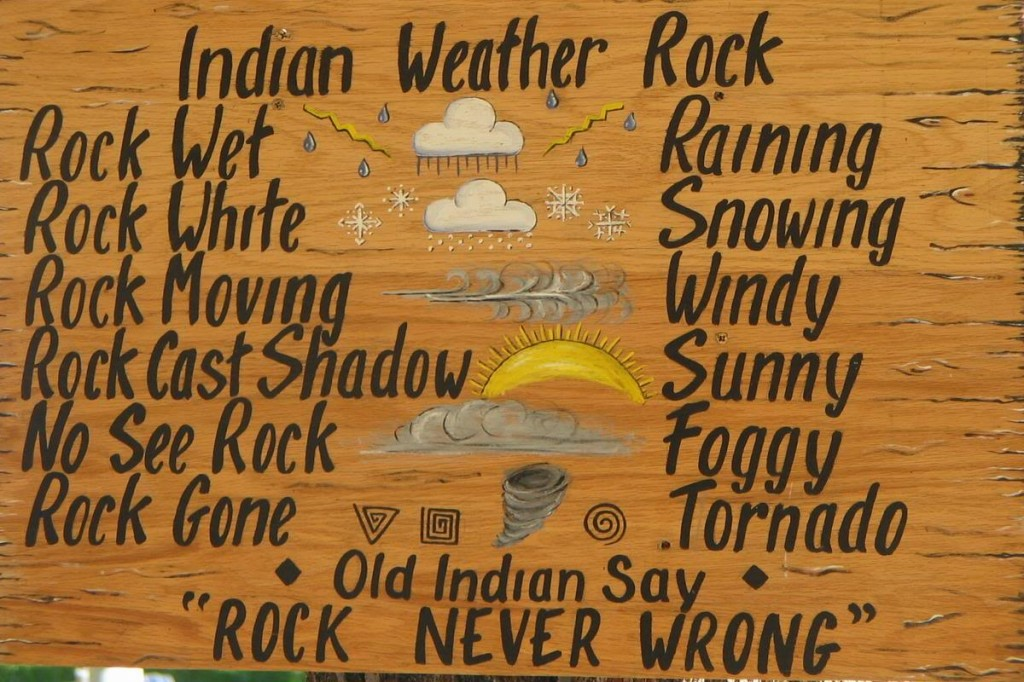 Indian Weather Rock
Rock Wet Raining
Rock White Snowing
Rock Moving Windy
Rock Cast Shadow Sunny
No See Rock Foggy
Rock Gone Tornado
Old Indian Say
"ROCK NEVER WRONG"